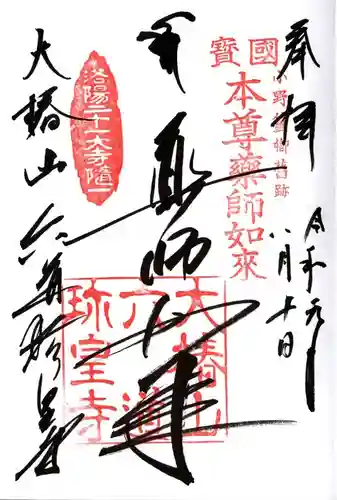 奉拝
令和元年
八月十日
小野篁卿旧跡
國寶
本尊薬師如来
薬師如来
洛陽二十一大寺随一
大椿山
六道
珍皇寺
大椿山 六道珍皇寺